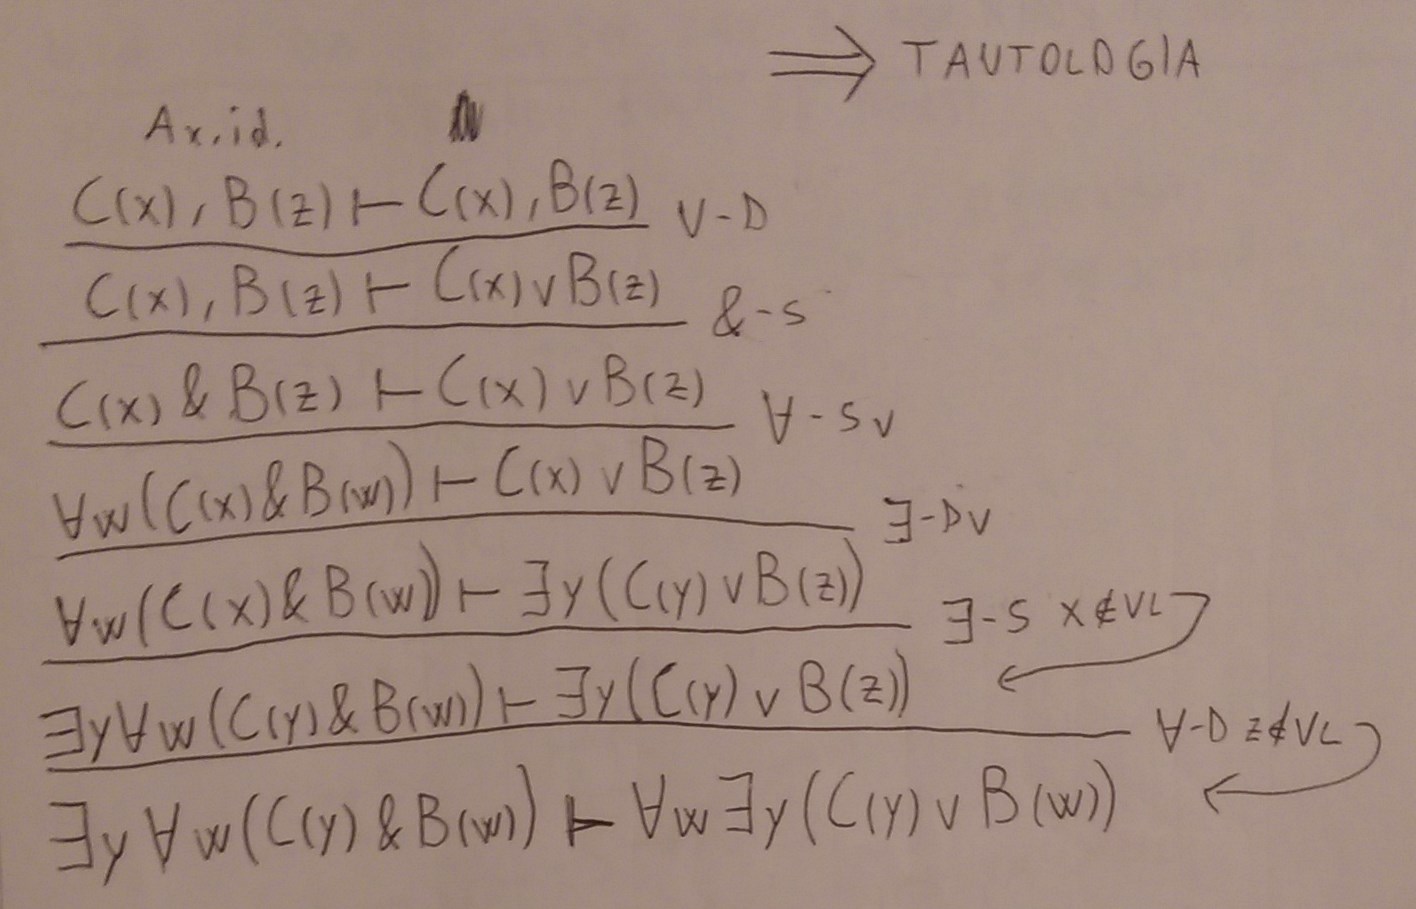 ⇒ TAUTOLOGIA
Ax.id.
C(x), B(z) ⊢ C(x), B(z) ∨-D
C(x), B(z) ⊢ C(x) ∨ B(z) &-S
C(x) & B(z) ⊢ C(x) ∨ B(z) ∀-Sv
∀w(C(x) & B(w)) ⊢ C(x) ∨ B(z) ∃-Dv
∀w(C(x) & B(w)) ⊢ ∃y(C(y) ∨ B(z)) ∃-S x∉VL
∃y∀w(C(y) & B(w)) ⊢ ∃y(C(y) ∨ B(z)) ∀-D z∉VL
∃y∀w(C(y) & B(w)) ⊢ ∀w∃y(C(y) ∨ B(w))